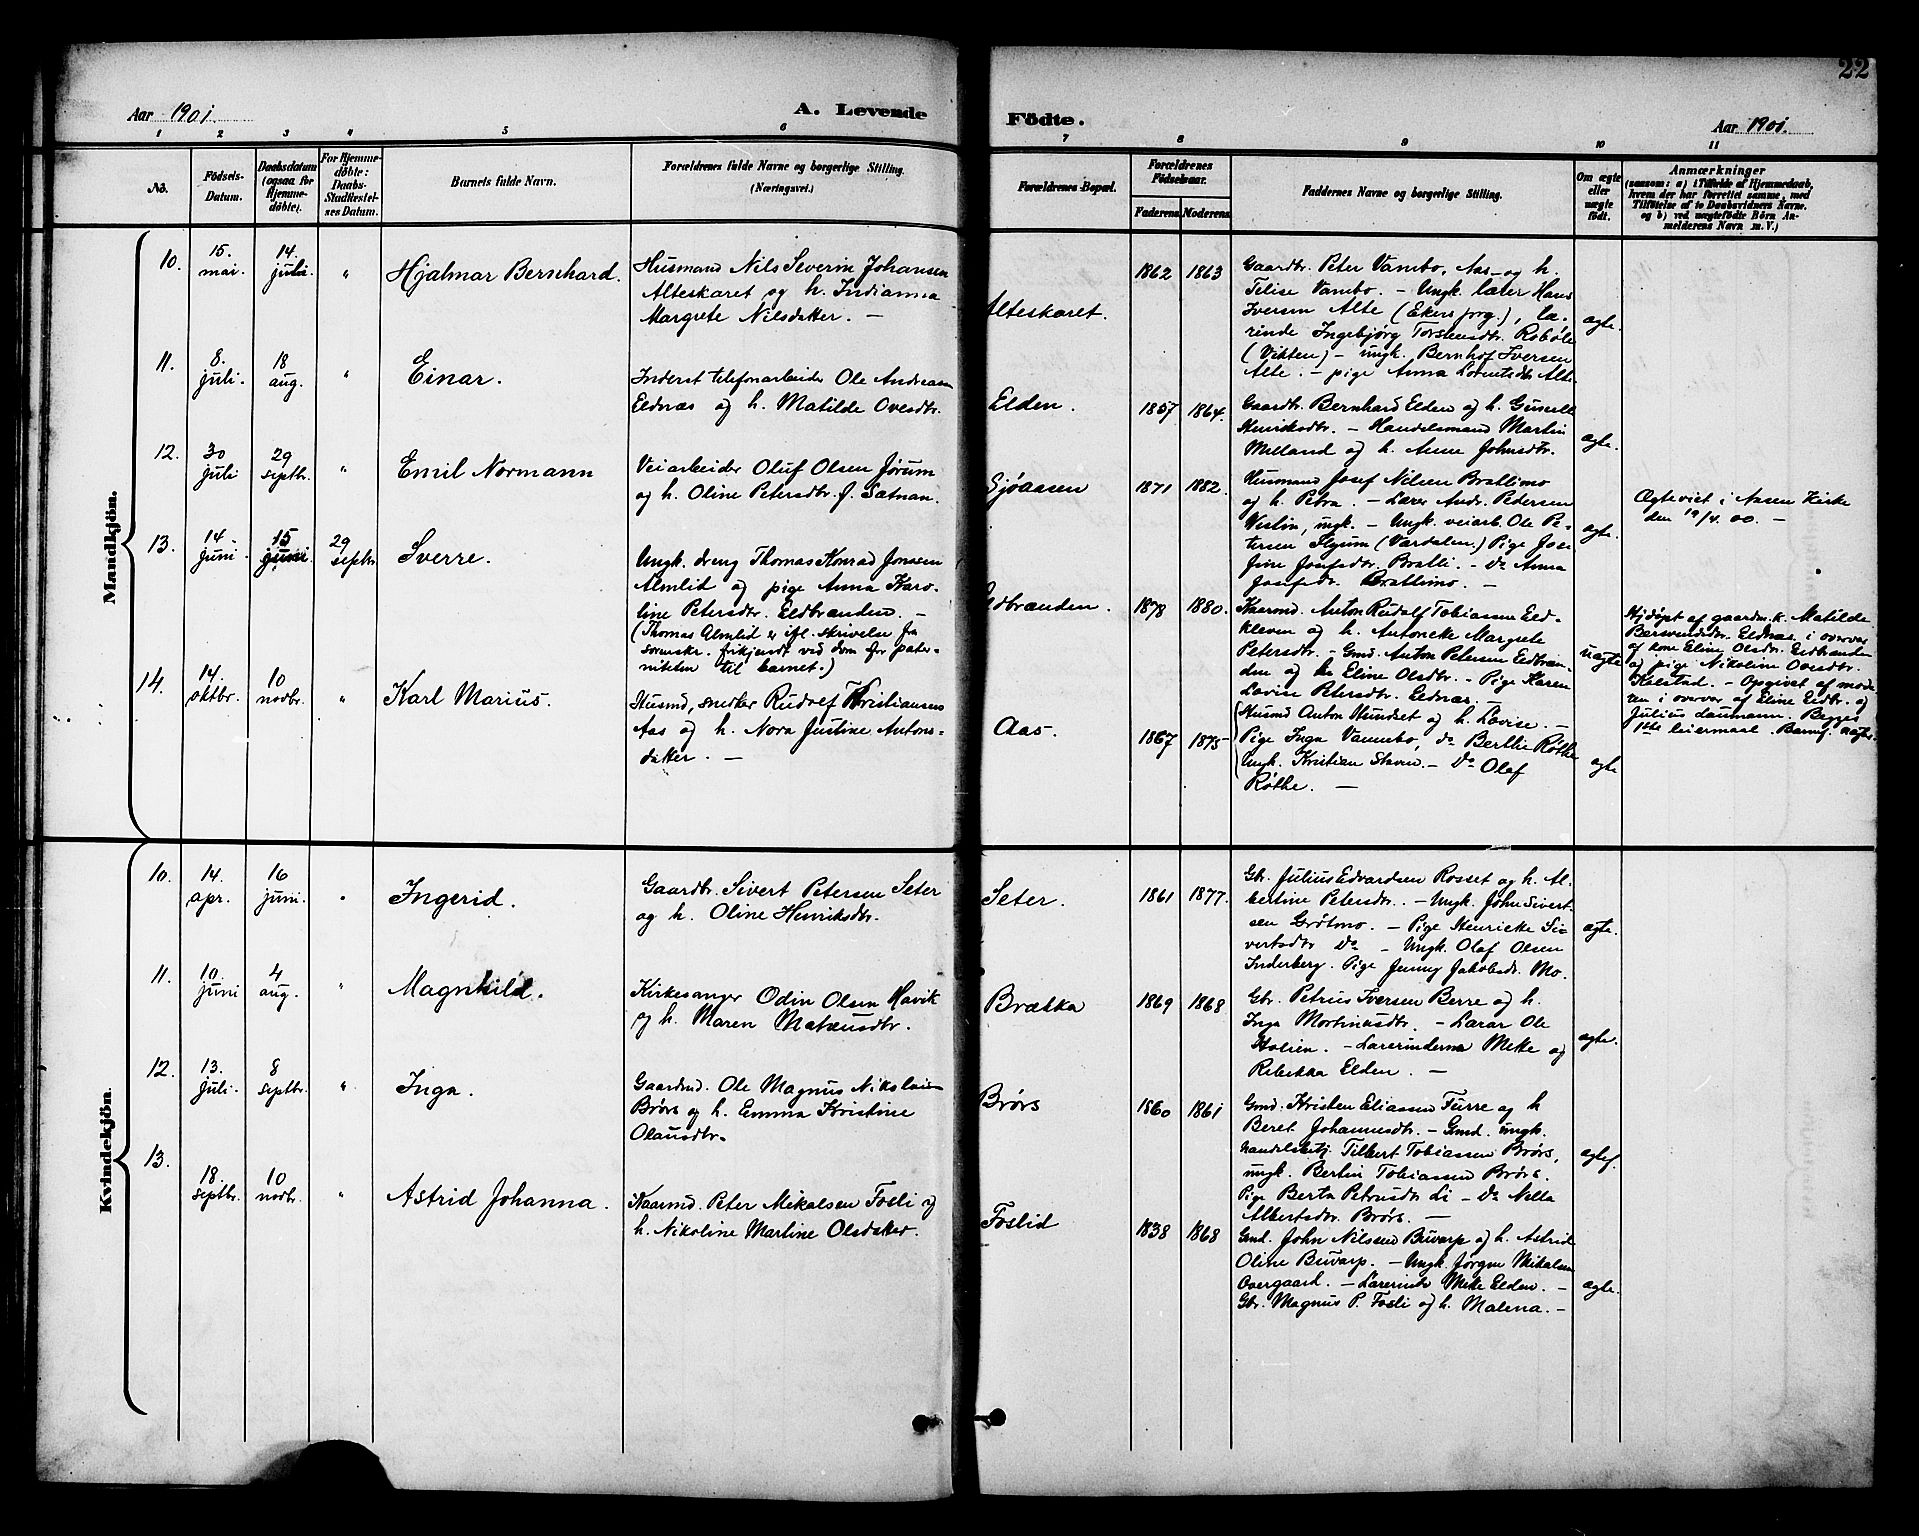 22
Aar 1901.
A. Levende
Födte.
Aar 1901.
1 2 3 4 5 6 7 8 9 10 11
No.
Födsels-
Datum.
Daabsdatum
(ogsaa for
Hjemme-
döbte).
For Hjemme-
döbte:
Daabs-
Stadfæstel-
ses Datum.
Barnets fulde Navn.
Forældrenes fulde Navne og borgerlige Stilling.
(Næringsvei.)
Forældrenes Bopæl.
Forældrenes
Födselsaar.
Faderens
Moderens
Faddernes Navne og borgerlige Stilling.
Om ægte
eller
uægte
födt.
Anmærkninger
(saasom: a) i Tilfælde af Hjemmedaab,
hvem der har forrettet samme, med
Tilföielse af to Daabsvidners Navne.
og b) ved uægtefödte Börn An-
melderens Navn m. V.)
Mandkjön.
10.
15.
mai.
14.
juli.
"
Hjalmar Bernhard.
Husmand Nils Severin Johansen
Alteskaret og h. Indianna
Margrete Nilsdatter. —
Alteskaret.
1862 1863
Gaardbr. Peter Vambo, Aas og h.
Telise Vambo. — Ungk. lærer Hans
Iversen Alte (Ekens prg.), læ-
rinde Ingebjørg Torstensdtr. Robøle
(Vikten) — ungk. Bernhof Iversen
Alte. — pige Anna Lorentsdtr. Alte.
ægte.
11.
8.
juli.
18
aug.
"
Einar.
Inderst telefonarbeider Ole Andreasen
Eldnæs og h. Matilde Ovesdtr.
Elden.
1857 1864.
Gaardbr. Bernhard Elden og h. Gunell
Henriksdtr. — Handelsmand Martin
Melland og h. Anne Johnsdtr.
ægte.
12.
30
juli
29
septbr.
"
Emil Normann
Veiarbeider Oluf Olsen Jørum
og h. Oline Petersdtr. f. Satnan.
Sjøaasen
1871 1882.
Husmand Josef Nilsen Brattimo
og h. Petra. — Lærer Andr. Pedersen
Veslin, ungk. — Ungk. veiarb. Ole Pe-
tersen Slyum (Værdalen.) Pige Jose-
fine Josefsdtr. Bratli. — Do Anna
Josefsdr. Brattimo. —
ægte.
Ægteviet i Aasen Kirke
den 19/4. 00. —
13.
14
juni.
15
juni.
29
septbr
Sverre.
Ungk. dreng Thomas Konrad Jonssen
Almlid og pige Anna Karo-
line Petersdtr. Eldbranden. —
(Thomas Almlid er ifl. skrivelse fra
sorenskr. frikjendt ved dom for pater-
niteten til barnet.)
Eldbranden.
1878 1880.
Kaarmd. Anton Rudolf Tobiassen Eld-
kleven og h. Antonette Margrete
Petersdtr. — Gmd. Anton Petersen Eldbran-
den og h. Eline Olsdtr. — Pige Karen
Lovise Petersdtr. Eldnæs. —
uægte
Hjdøpt af gaardm.k. Matilde
Bersvendsdtr. Eldnæs i overvær
af kone Eline Olsdtr. Eldbranden
og pige Nikoline Ovesdtr.
Kalstad. — Opgivet af mode-
ren i overvær af Eline Eldbr. og
Julius Laumann. Begges
1ste leiermaal.
14.
14.
oktbr.
10
novbr.
"
Karl Marius.
Husmd, snekker Rudolf Kristiansen
Aas og h. Nora Justine Antons-
datter. —
Aas.
1867 1875
Husmd Anton Hundset og h. Lovise. —
Pige Inga Vannebo, do Berthe Røthe
Ungk. Kristian Staven. — Do Olaf
Røthe. —
ægte
Kvindekjön.
10.
14.
apr.
16
juni.
"
Ingerid.
Gaardbr. Sivert Petersen Seter
og h. Oline Henriksdtr.
Seter.
1861 1877.
Gbr. Julius Edvardsen Rosset og h. Al-
bertine Petersdtr. — Ungk. John Sivert-
sen Grøtmo. — Pige Henrikke Si-
vertsdtr Do — Ungk. Olaf Olsen
Inderberg. Pige Jenny Jakobsdr. Mo.
ægte.
11.
10.
juni
4
aug.
"
Magnhild.
Kirkesanger Odin Olsen Havik
og h. Maren Mateusdtr.
Brækka
1869 1868
Gbr. Petrus Iversen Berre og h.
Inga Mortinusdtr. — Lærer Ole
Holien. — Lærerinderne Mekke og
Rebekka Elden. —
ægte.
12.
13.
juli.
8
septbr.
"
Inga.
Gaardmd. Ole Magnus Nikolaisen
Brørs og h. Emma Kristine
Olausdtr.
Brørs
1860 1861
Gmd. Kristen Eliassen Furre og h
Beret Johannesdtr. — Gmd. ungk.
handelsbetj. Tilbert Tobiassen Brørs,
ungk. Bertin Tobiassen Brørs.
Pige Berta Petrusdtr Li — Do Nella
Albertsdtr. Brørs. —
ægte.
13.
18.
septbr.
10
novbr.
"
Astrid Johanna.
Kaarmd. Peter Mikalsen Fosli og
h. Nikoline Martine Olsdatter.
Foslid
1838 1868
Gmd. John Nilssen Buvarp og h. Astrid
Oline Buvarp. — Ungk. Jørgen Mikalsen
Overgaard. — Lærerinde Mekke Elden. —
Gbr. Magnus P. Fosli og h. Malena. —
ægte.